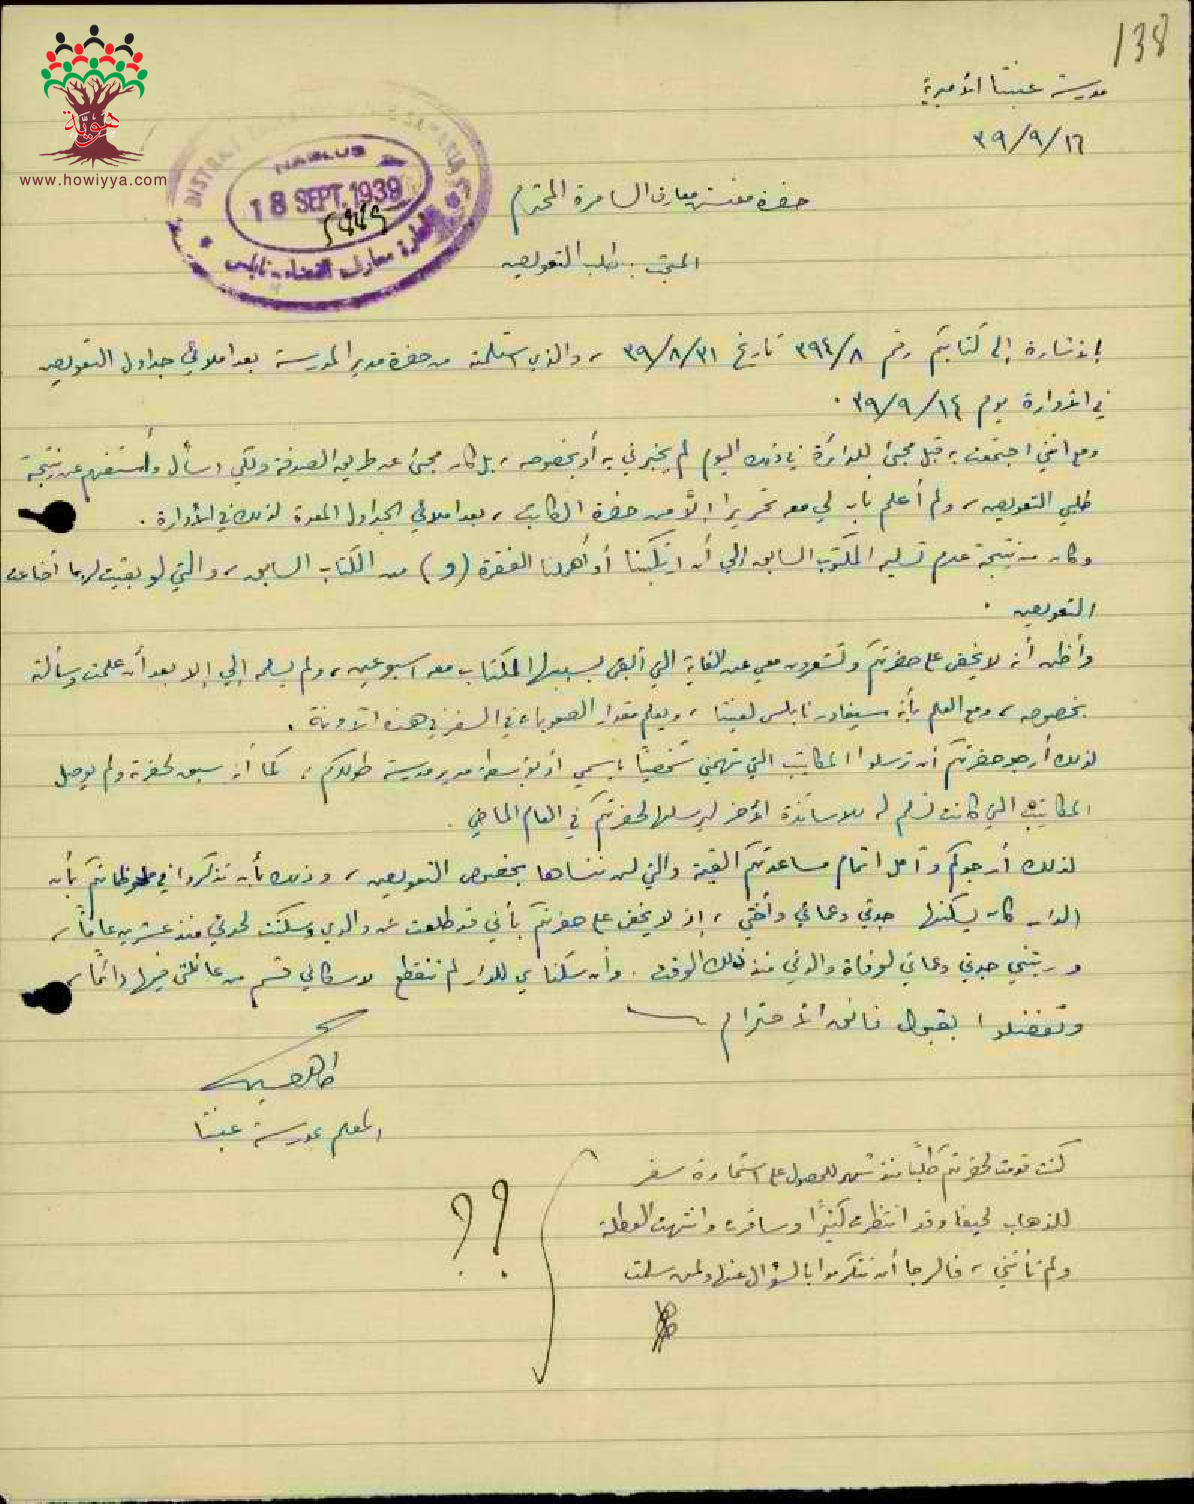 138
هوية
www.howiyya.com
مدرسة عنبتا الأميرية
١٦/٩/٣٩
NABLUS
18 SEPT. 1939
إدارة معارف القضاء نابلس
حضرة مفتش معارف السامرة المحترم
المبحث: طلب التعويض
بالاشارة إلى كتابكم رقم ٣٩٤/٨ تاريخ ٣١/٨/٣٩، والذي استلمته من حضرة مدير المدرسة بعد املائي جداول التعويض
في الادارة يوم ١٤/٩/٣٩.
ومع انني اجتمعت به قبل مجيئي للدائرة في ذلك اليوم لم يخبرني به أو بخصوصه، بل كان مجيئي عن طريق الصدفة ولكي اسأل وأستفهم عن نتيجة
طلبي التعويض، ولم أعلم بان لي معه تحريرا إلّا من حضرة الكاتب، بعد املائي الجداول المعدة لذلك في الادارة.
وكان من نتيجة عدم تسليم المكتوب السابق إلي أن ارتبكنا أو أهملنا الفقرة (و) من الكتاب السابق، والتي لو بقيت لربما أضاعت
التعويض.
وأظن أنه لا يخفى على حضرتكم وتشعرون معي عن الغاية التي أبقى بسببها الكتاب معه اسبوعين، ولم يسلمه إلي إلا بعد أن علمت وسألته
بخصوصه، ومع العلم بأنه سيغادر نابلس لعنبتا، ويعلم مقدار الصعوبات في السفر في هذه الآونة.
لذلك أرجو حضرتكم أن ترسلوا المكاتيب التي تهمني شخصيًا باسمي أو بواسطة مدير مدرسة طولكرم، كما أنه سبق لحضرته ولم يوصل
المكاتيب التي كانت تسلم له للاساتذة الأخر ليرسلها لحضرتكم في العام الماضي.
لذلك أرجوكم وآمل اتمام مساعدتكم القيمة والتي لن ننساها بخصوص التعويض، وذلك بأن تذكروا في ملحوظاتكم بأن
الدار كان يسكنها جدتي وعماتي وأختي، إذ لا يخفى على حضرتكم بأني قد طلعت عن والدي وسكنت لحدتي منذ عشرين عامًا،
وربتني جدتي وعماتي لوفاة والدتي منذ ذلك الوقت. وأن سكناي للدار لم تنقطع لاسكاني قسم من عائلتي فيها دائمًا،
وتفضلوا بقبول فائق الاحترام
المعلم بمدرسة عنبتا
كنت قدمت لحضرتكم طلبًا منذ شهر للحصول على استمارة سفر
للذهاب لحيفا وقد انتظرت كثيرًا وسافرت وانتهت العطلة
ولم تأتني، فالرجا أن تتكرموا بالسؤال عنها ولمن سلمت
؟؟